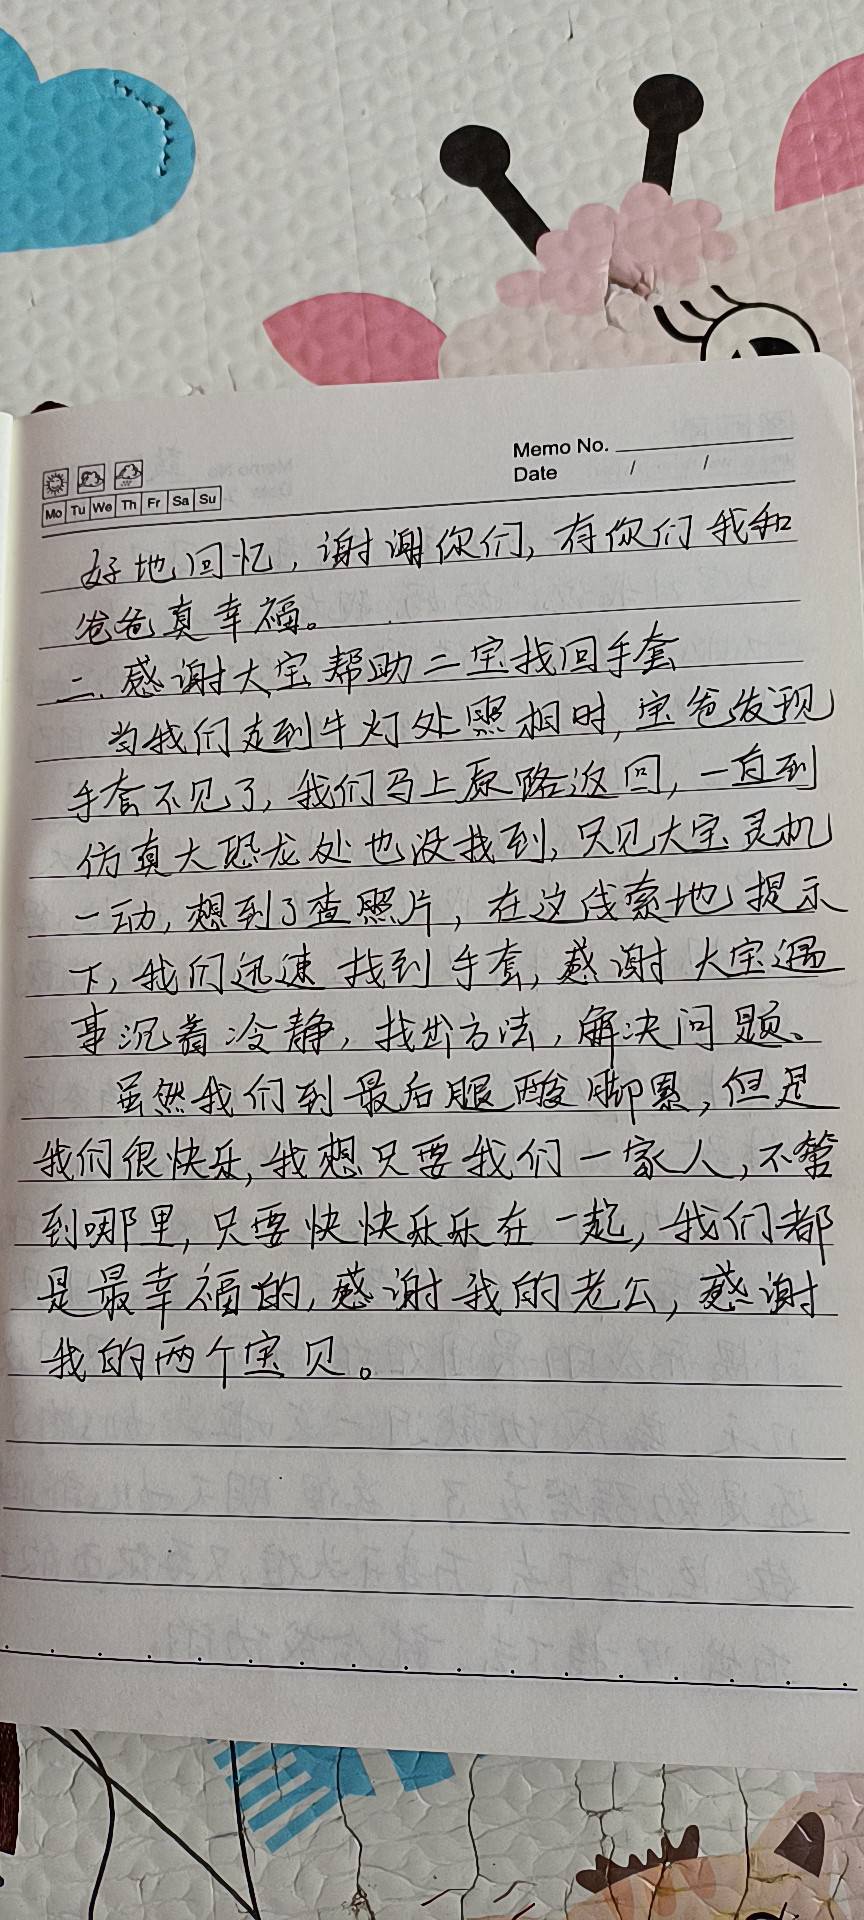 Memo No.
Date / /
Mo Tu We Th Fr Sa Su
好地回忆，谢谢你们，有你们我和
爸爸真幸福。
二.感谢大宝帮助二宝找回手套
当我们走到牛灯处照相时，宝爸发现
手套不见了，我们马上原路返回，一直到
仿真大恐龙处也没找到，只见大宝灵机
一动，想到了查照片，在这线索地提示
下，我们迅速找到手套，感谢大宝遇
事沉着冷静，找出方法，解决问题、
虽然我们到最后腿酸脚累，但是
我们很快乐，我想只要我们一家人，不管
到哪里，只要快快乐乐在一起，我们都
是最幸福的，感谢我的老公，感谢
我的两个宝贝。